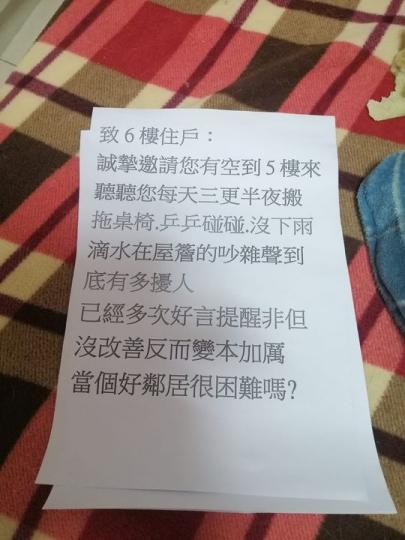 致6樓住戶：
誠摯邀請您有空到5樓來
聽聽您每天三更半夜搬
拖桌椅.乒乒碰碰.沒下雨
滴水在屋簷的吵雜聲到
底有多擾人
已經多次好言提醒非但
沒改善反而變本加厲
當個好鄰居很困難嗎?